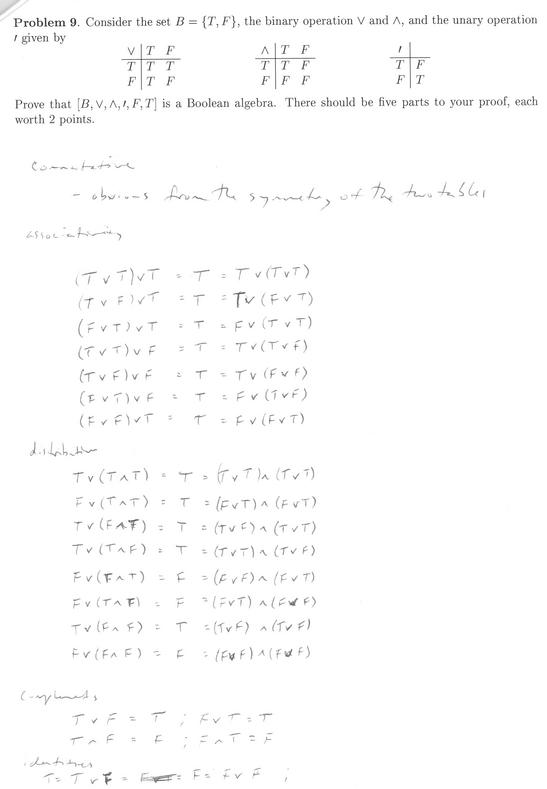 Problem 9. Consider the set B = {T, F}, the binary operation ∨ and ∧, and the unary operation
′ given by
∨ | T F    ∧ | T F    ′ |
T | T T    T | T F    T | F
F | T F    F | F F    F | T
Prove that [B, ∨, ∧, ′, F, T] is a Boolean algebra. There should be five parts to your proof, each
worth 2 points.
Commutative
- obvious from the symmetry of the two tables
associativity
(T ∨ T) ∨ T = T = T ∨ (T ∨ T)
(T ∨ F) ∨ T = T = T ∨ (F ∨ T)
(F ∨ T) ∨ T = T = F ∨ (T ∨ T)
(T ∨ T) ∨ F = T = T ∨ (T ∨ F)
(T ∨ F) ∨ F = T = T ∨ (F ∨ F)
(F ∨ T) ∨ F = T = F ∨ (T ∨ F)
(F ∨ F) ∨ T = T = F ∨ (F ∨ T)
distributive
T ∨ (T ∧ T) = T = (T ∨ T) ∧ (T ∨ T)
F ∨ (T ∧ T) = T = (F ∨ T) ∧ (F ∨ T)
T ∨ (F ∧ T) = T = (T ∨ F) ∧ (T ∨ T)
T ∨ (T ∧ F) = T = (T ∨ T) ∧ (T ∨ F)
F ∨ (F ∧ T) = F = (F ∨ F) ∧ (F ∨ T)
F ∨ (T ∧ F) = F = (F ∨ T) ∧ (F ∨ F)
T ∨ (F ∧ F) = T = (T ∨ F) ∧ (T ∨ F)
F ∨ (F ∧ F) = F = (F ∨ F) ∧ (F ∨ F)
Complements
T ∨ F = T ; F ∨ T = T
T ∧ F = F ; F ∧ T = F
identities
T = T ∨ F = F = F ∨ F ;